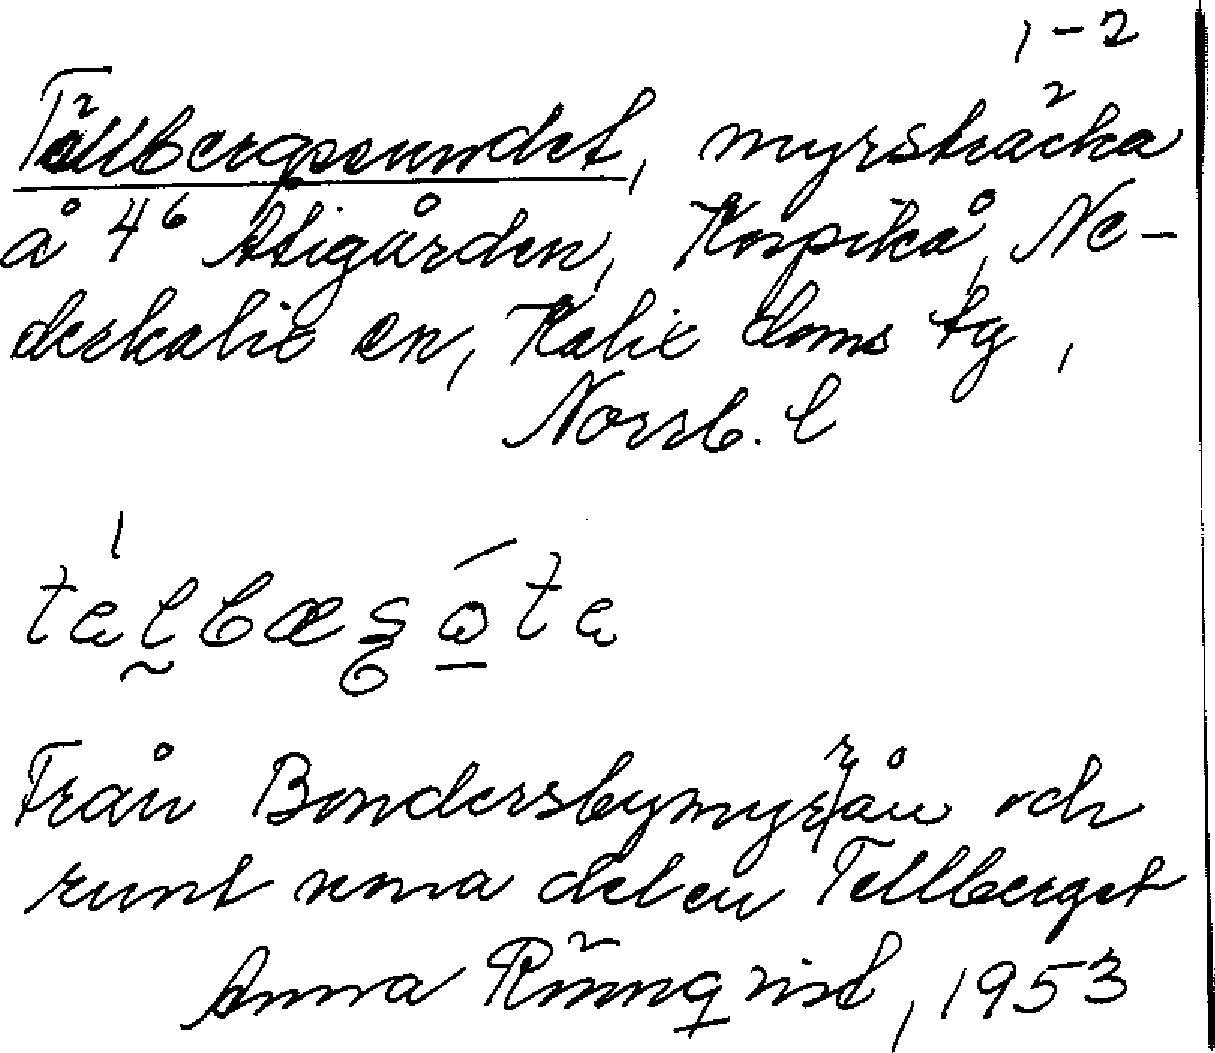 1-2
Tällbergssundet, myrsträcka
å 4⁶ Stigården, Korpikå, Ne-
derkalix sn, Kalix doms tg,
Norrb. l
Från Bondersbymyrån och
runt norra delen Tellberget
Anna Rönnqvist, 1953